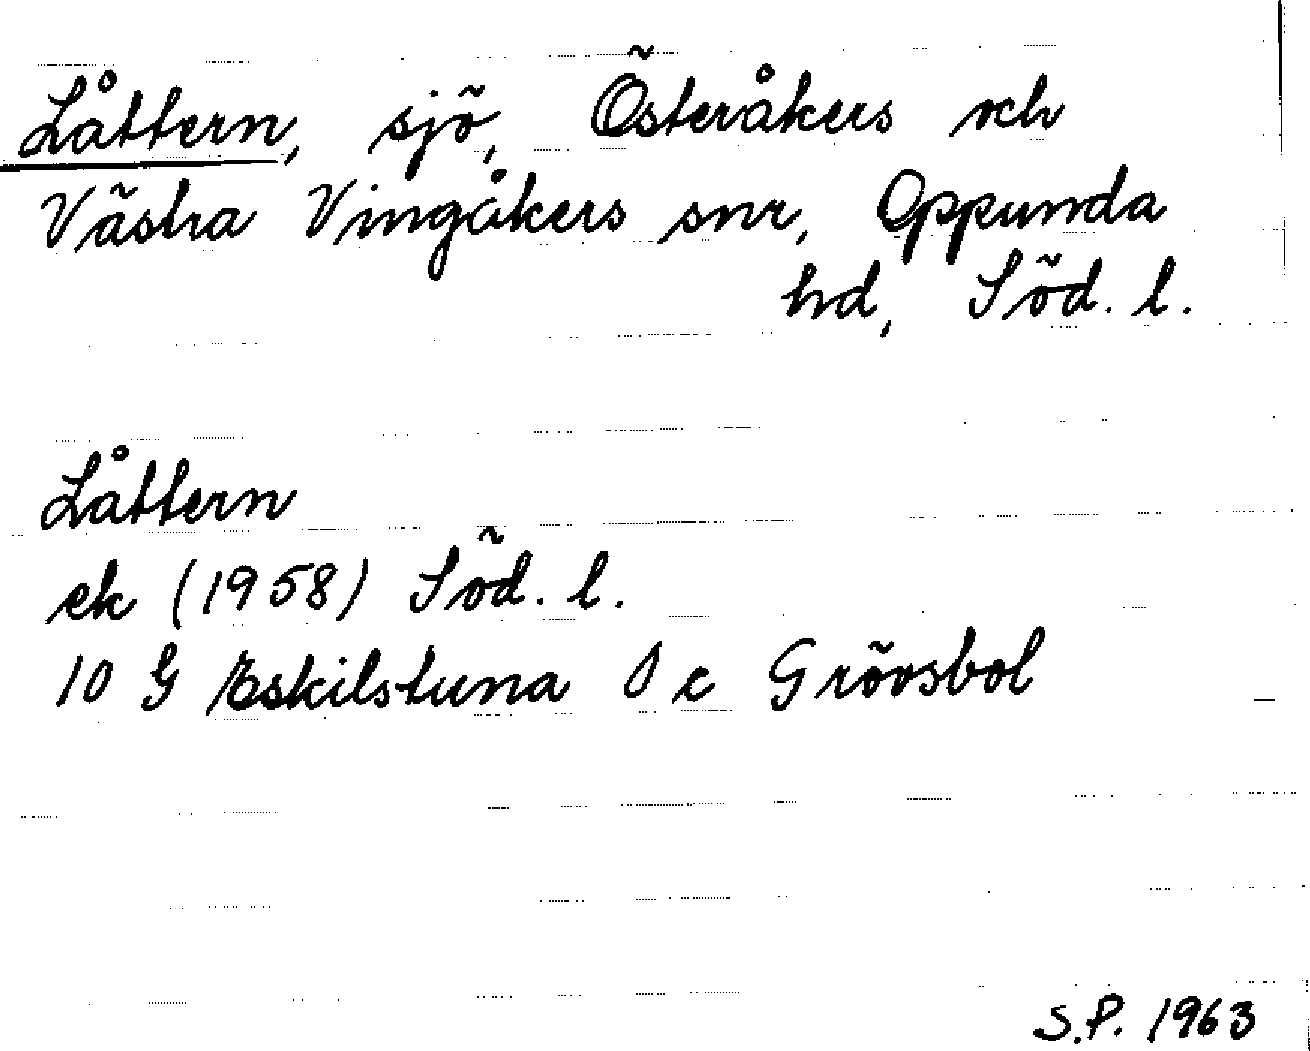 Låttern, sjö, Österåkers och
Västra Vingåkers snr, Oppunda
hd, Söd. l.
Låttern
ek (1958) Söd. l.
10 G Eskilstuna S c Grövsbol
S.P. 1963